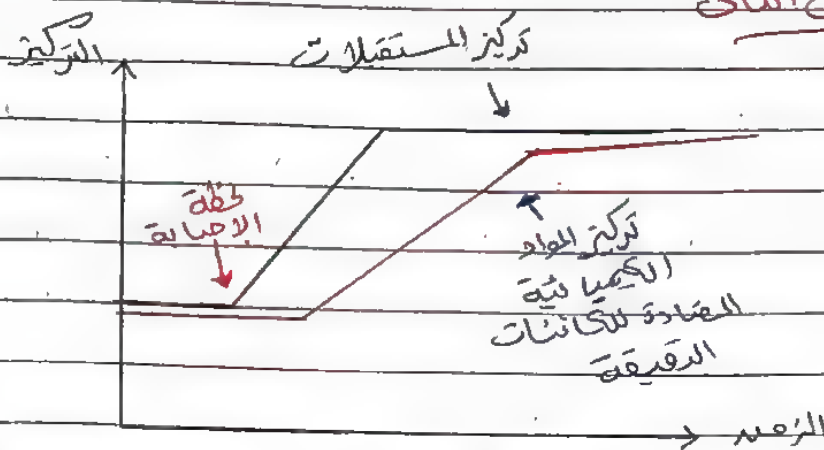 التركيز
تركيز المستقبلات
لحظة
الإصابة
تركيز المواد
الكيميائية
المضادة للكائنات
الدقيقة
الزمن